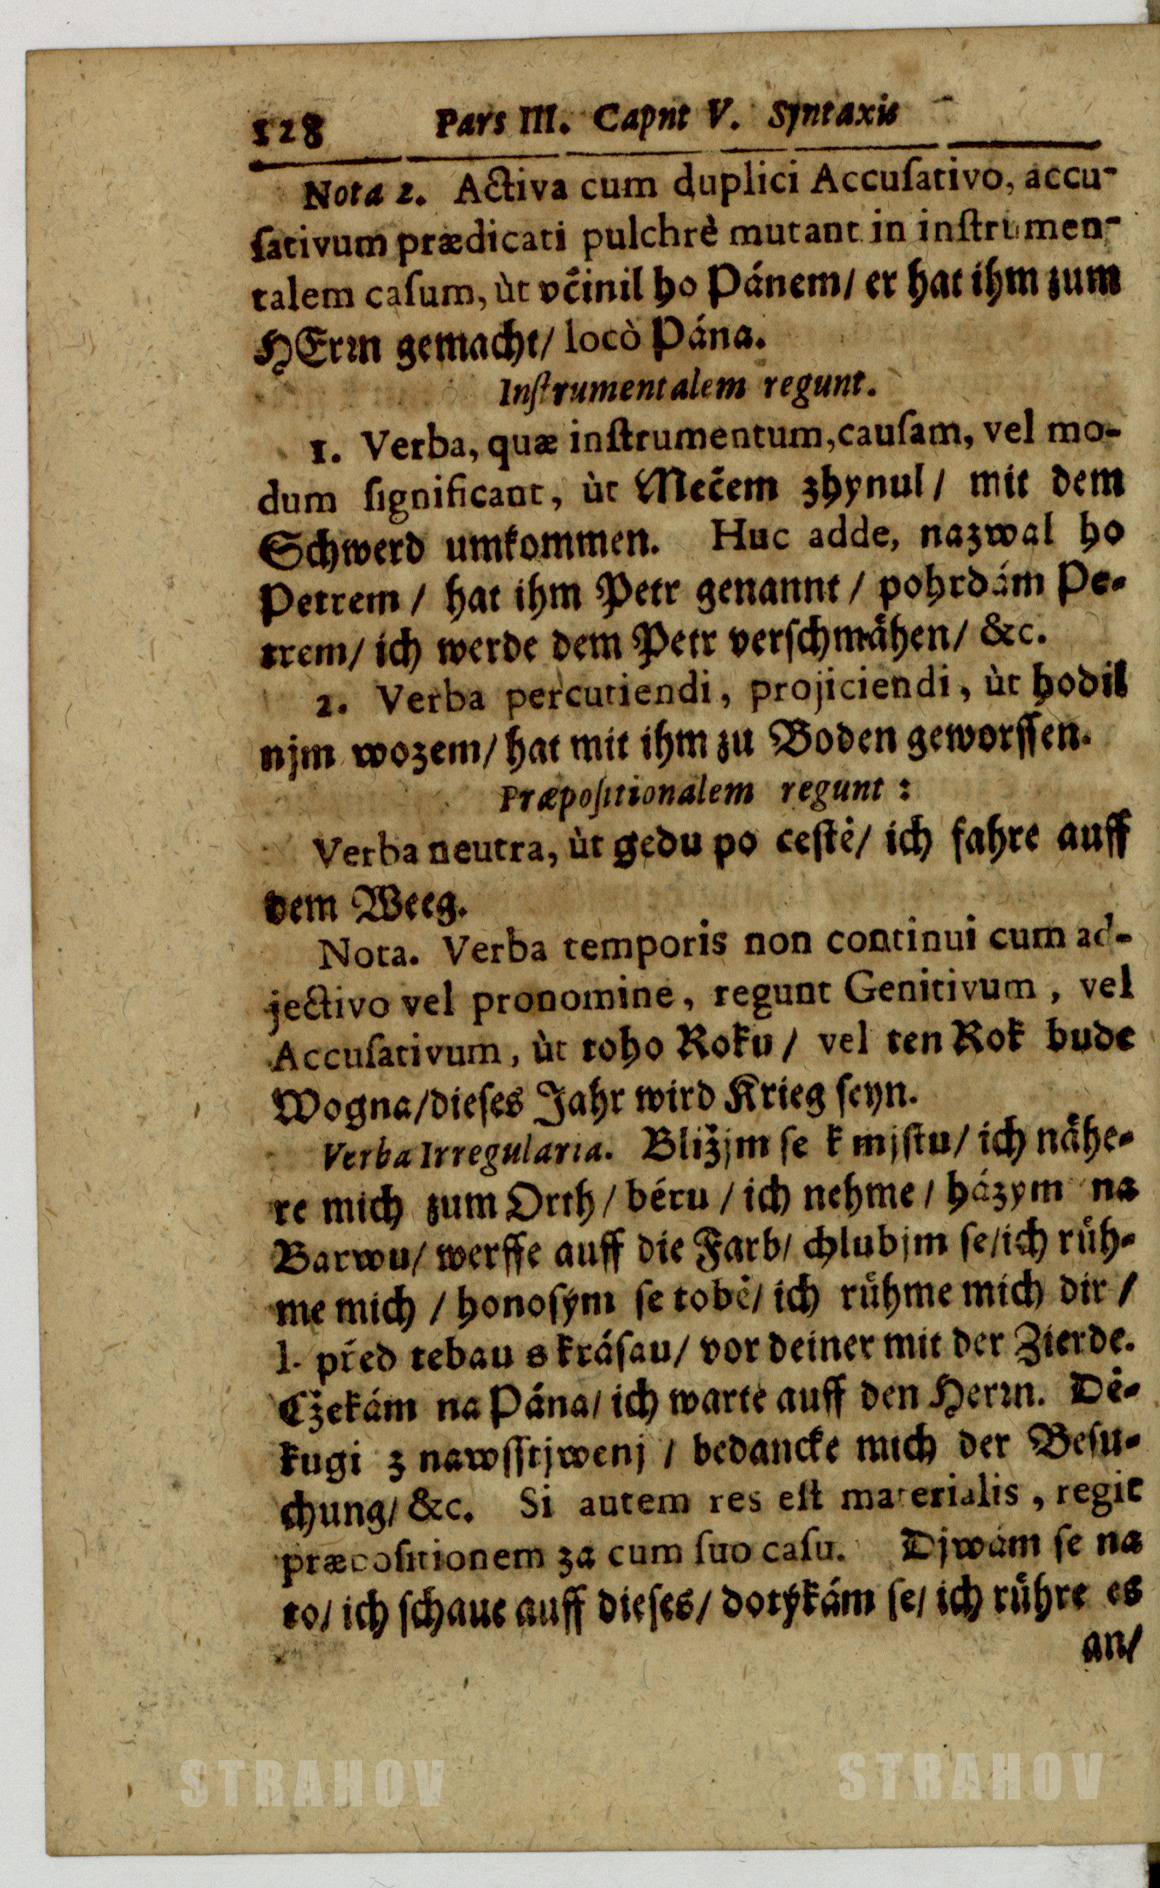 128 Pars III. Capnt V. Syntaxis
Nota 2. Activa cum duplici Accusativo, accu-
sativum prædicati pulchrè mutant in instrumen-
talem casum, ùt včinil ho Pánem/ er hat ihm zum
HErrn gemacht/ locò Pána.
Instrumentalem regunt.
1. Verba, quæ instrumentum, causam, vel mo-
dum significant, ùt Mečem zhynul/ mit dem
Schwerd umkommen. Huc adde, nazwal ho
Petrem / hat ihm Petr genannt / pohrdám Pe-
trem/ ich werde dem Petr verschmähen/ &c.
2. Verba percutiendi, projiciendi, ùt hodil
njm wozem/ hat mit ihm zu Boden geworffen.
Præpositionalem regunt:
Verba neutra, ùt gedu po cestě/ ich fahre auff
dem Weeg.
Nota. Verba temporis non continui cum ad-
jectivo vel pronomine, regunt Genitivum, vel
Accusativum, ùt toho Roku/ vel ten Rok bude
Wogna/ dieses Jahr wird Krieg seyn.
Verba Irregularia. Bližjm se k mjstu/ ich nähe-
re mich zum Orth/ béru / ich nehme / házym na
Barwu/ werffe auff die Farb/ chlubjm se/ ich rüh-
me mich / honosým se tobě/ ich rühme mich dir /
l. před tebau s krásau/ vor deiner mit der Zierde.
Cžekám na Pána/ ich warte auff den Herrn. Dě-
kugi z nawsstjwenj / bedancke mich der Besu-
chung/ &c. Si autem res est materialis, regit
præpositionem za cum suo casu. Djwám se na
to/ ich schaue auff dieses/ dotýkám se/ ich rühre es
an/
STRAHOV STRAHOV